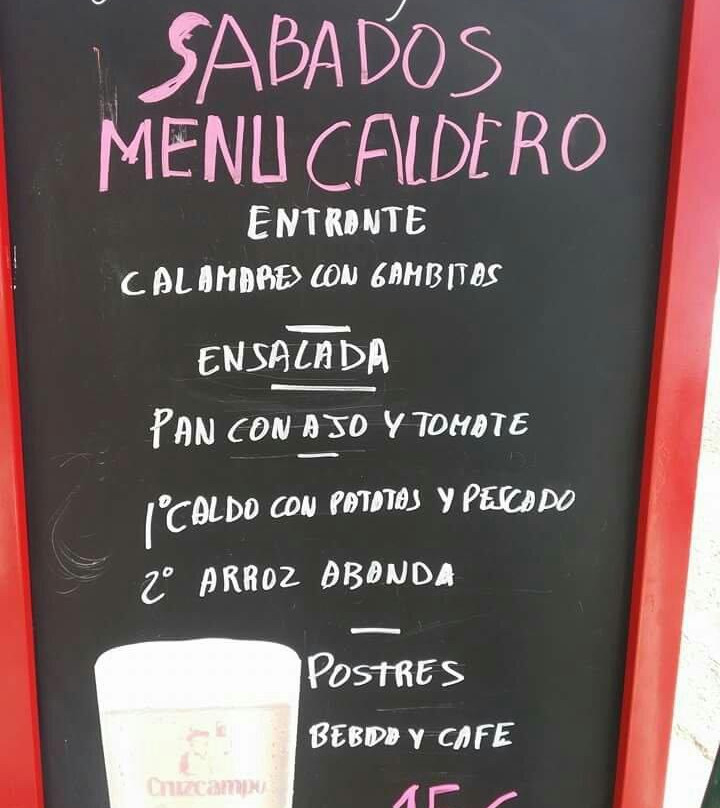 SABADOS
MENU CALDERO
ENTRANTE
CALAMARES CON GAMBITAS
ENSALADA
PAN CON AJO Y TOMATE
1º CALDO CON PATATAS Y PESCADO
2º ARROZ ABANDA
POSTRES
BEBIDA Y CAFE
Cruzcampo